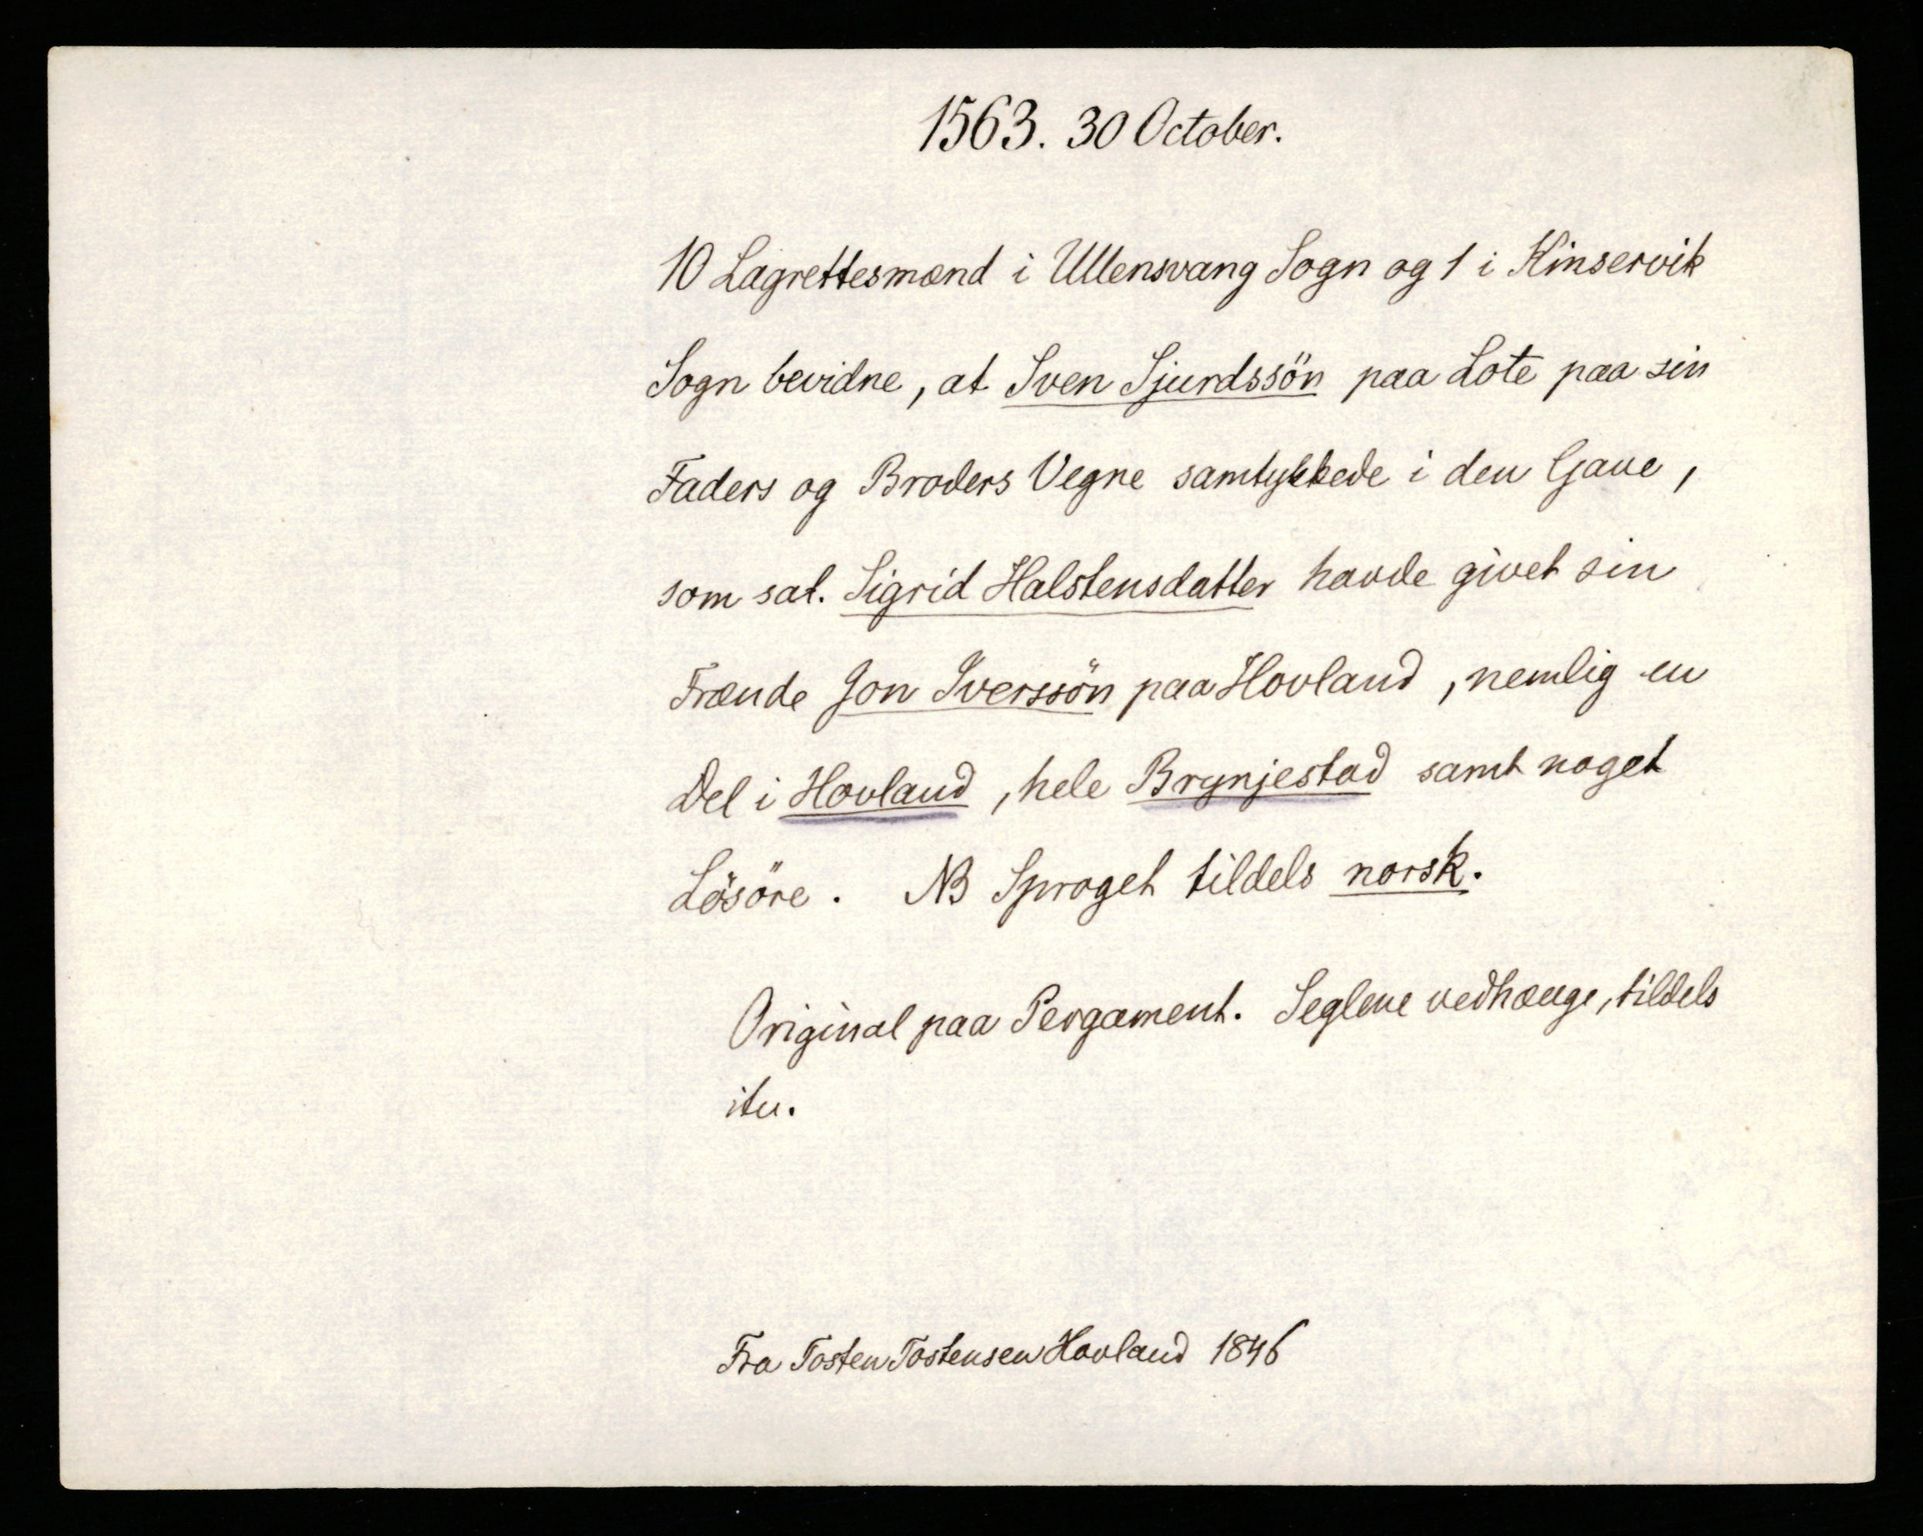 1563. 30 October.
10 Lagrettesmænd i Ullensvang Sogn og 1 i Kinservik
Sogn bevidne, at Sven Sjurdssön paa Lote paa sin
Faders og Broders Vegne samtykkede i den Gave,
som sal. Sigrid Halstensdatter havde givet sin
Frænde Jon Iverssön paa Hovland, nemlig en
Del i Hovland, hele Brynjestad samt noget
Lösöre. NB Sproget tildels norsk.
Original paa Pergament. Seglene vedhænge, tildels
itu.
Fra Tosten Tostensen Hovland 1846